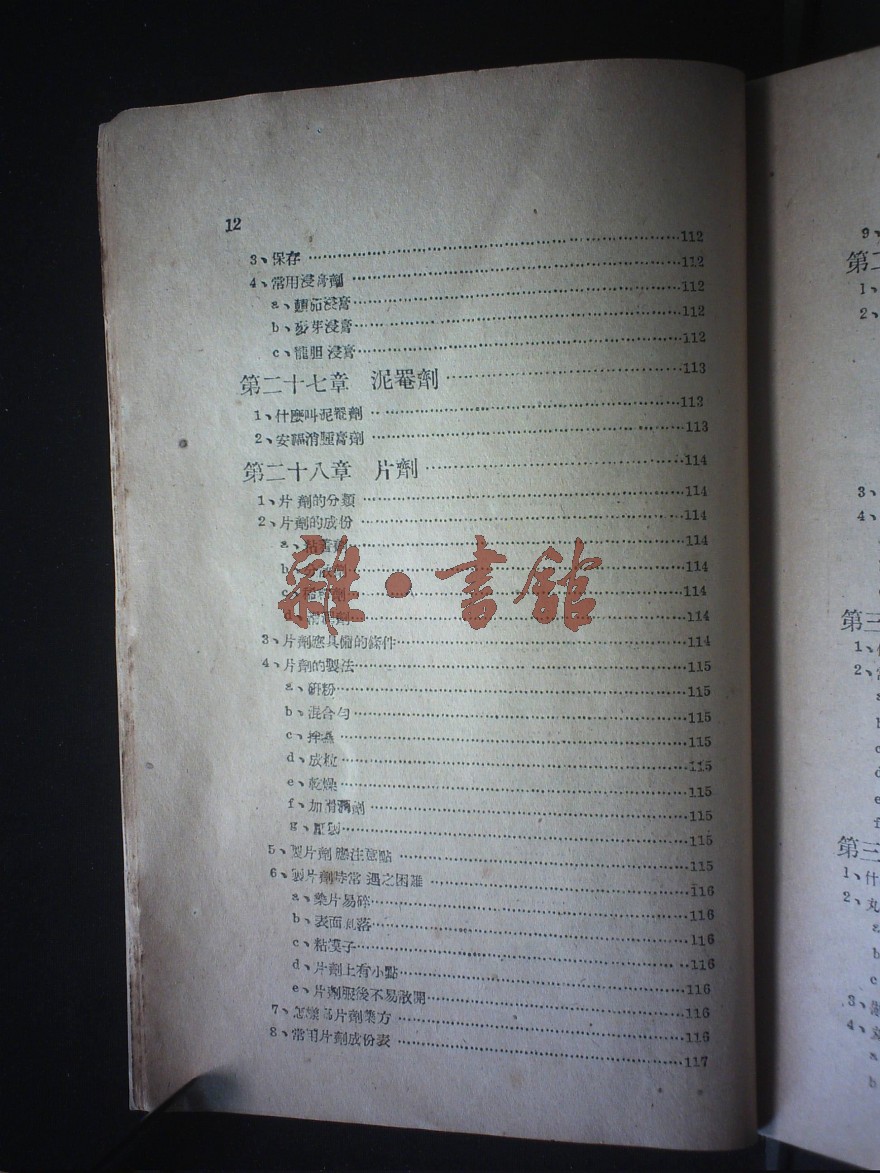 12
3、保存……112
4、常用浸膏劑……112
a、顚茄浸膏……112
b、麥芽浸膏……112
c、龍胆浸膏……112
第二十七章 泥罨劑……113
1、什麼叫泥罨劑……113
2、安福消腫膏劑……113
第二十八章 片劑……114
1、片劑的分類……114
2、片劑的成份……114
a、粘着劑……114
b、……114
c、……114
d、……114
3、片劑應具備的條件……114
4、片劑的製法……115
a、研粉……115
b、混合勻……115
c、……115
d、成粒……115
e、乾燥……115
f、加滑潤劑……115
g、壓製……115
5、製片劑應注意點……115
6、製片劑時常遇之困難……116
a、藥片易碎……116
b、表面剝落……116
c、粘……子……116
d、片劑上有小點……116
e、片劑服後不易散開……116
7、怎樣……片劑藥方……116
8、常用片劑成份表……117
雜·書館
9、
第二
1、
2、
3、
4、
第三
1、
2、
a
b
c
d
e
f
第三
1、什
2、丸
a
b
c
3、
4、
a
b